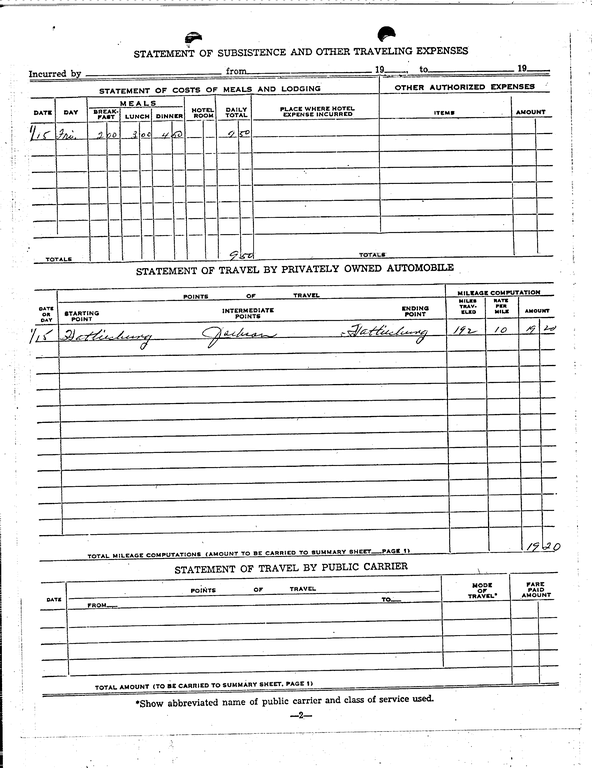 STATEMENT OF SUBSISTENCE AND OTHER TRAVELING EXPENSES
Incurred by from 19 to 19
STATEMENT OF COSTS OF MEALS AND LODGING OTHER AUTHORIZED EXPENSES
DATE DAY MEALS HOTEL ROOM DAILY TOTAL PLACE WHERE HOTEL EXPENSE INCURRED ITEMS AMOUNT
BREAK-FAST LUNCH DINNER
1/15 Fri. 2 00 3 00 4 50 9 50
TOTALS 9 50 TOTALS
STATEMENT OF TRAVEL BY PRIVATELY OWNED AUTOMOBILE
POINTS OF TRAVEL MILEAGE COMPUTATION
DATE OR DAY STARTING POINT INTERMEDIATE POINTS ENDING POINT MILES TRAV-ELED RATE PER MILE AMOUNT
1/15 Hattiesburg Jackson - Hattiesburg 192 10 19 20
TOTAL MILEAGE COMPUTATIONS (AMOUNT TO BE CARRIED TO SUMMARY SHEET—PAGE 1) 19 20
STATEMENT OF TRAVEL BY PUBLIC CARRIER
DATE POINTS OF TRAVEL MODE OF TRAVEL* FARE PAID AMOUNT
FROM— TO—
TOTAL AMOUNT (TO BE CARRIED TO SUMMARY SHEET, PAGE 1)
*Show abbreviated name of public carrier and class of service used.
—2—